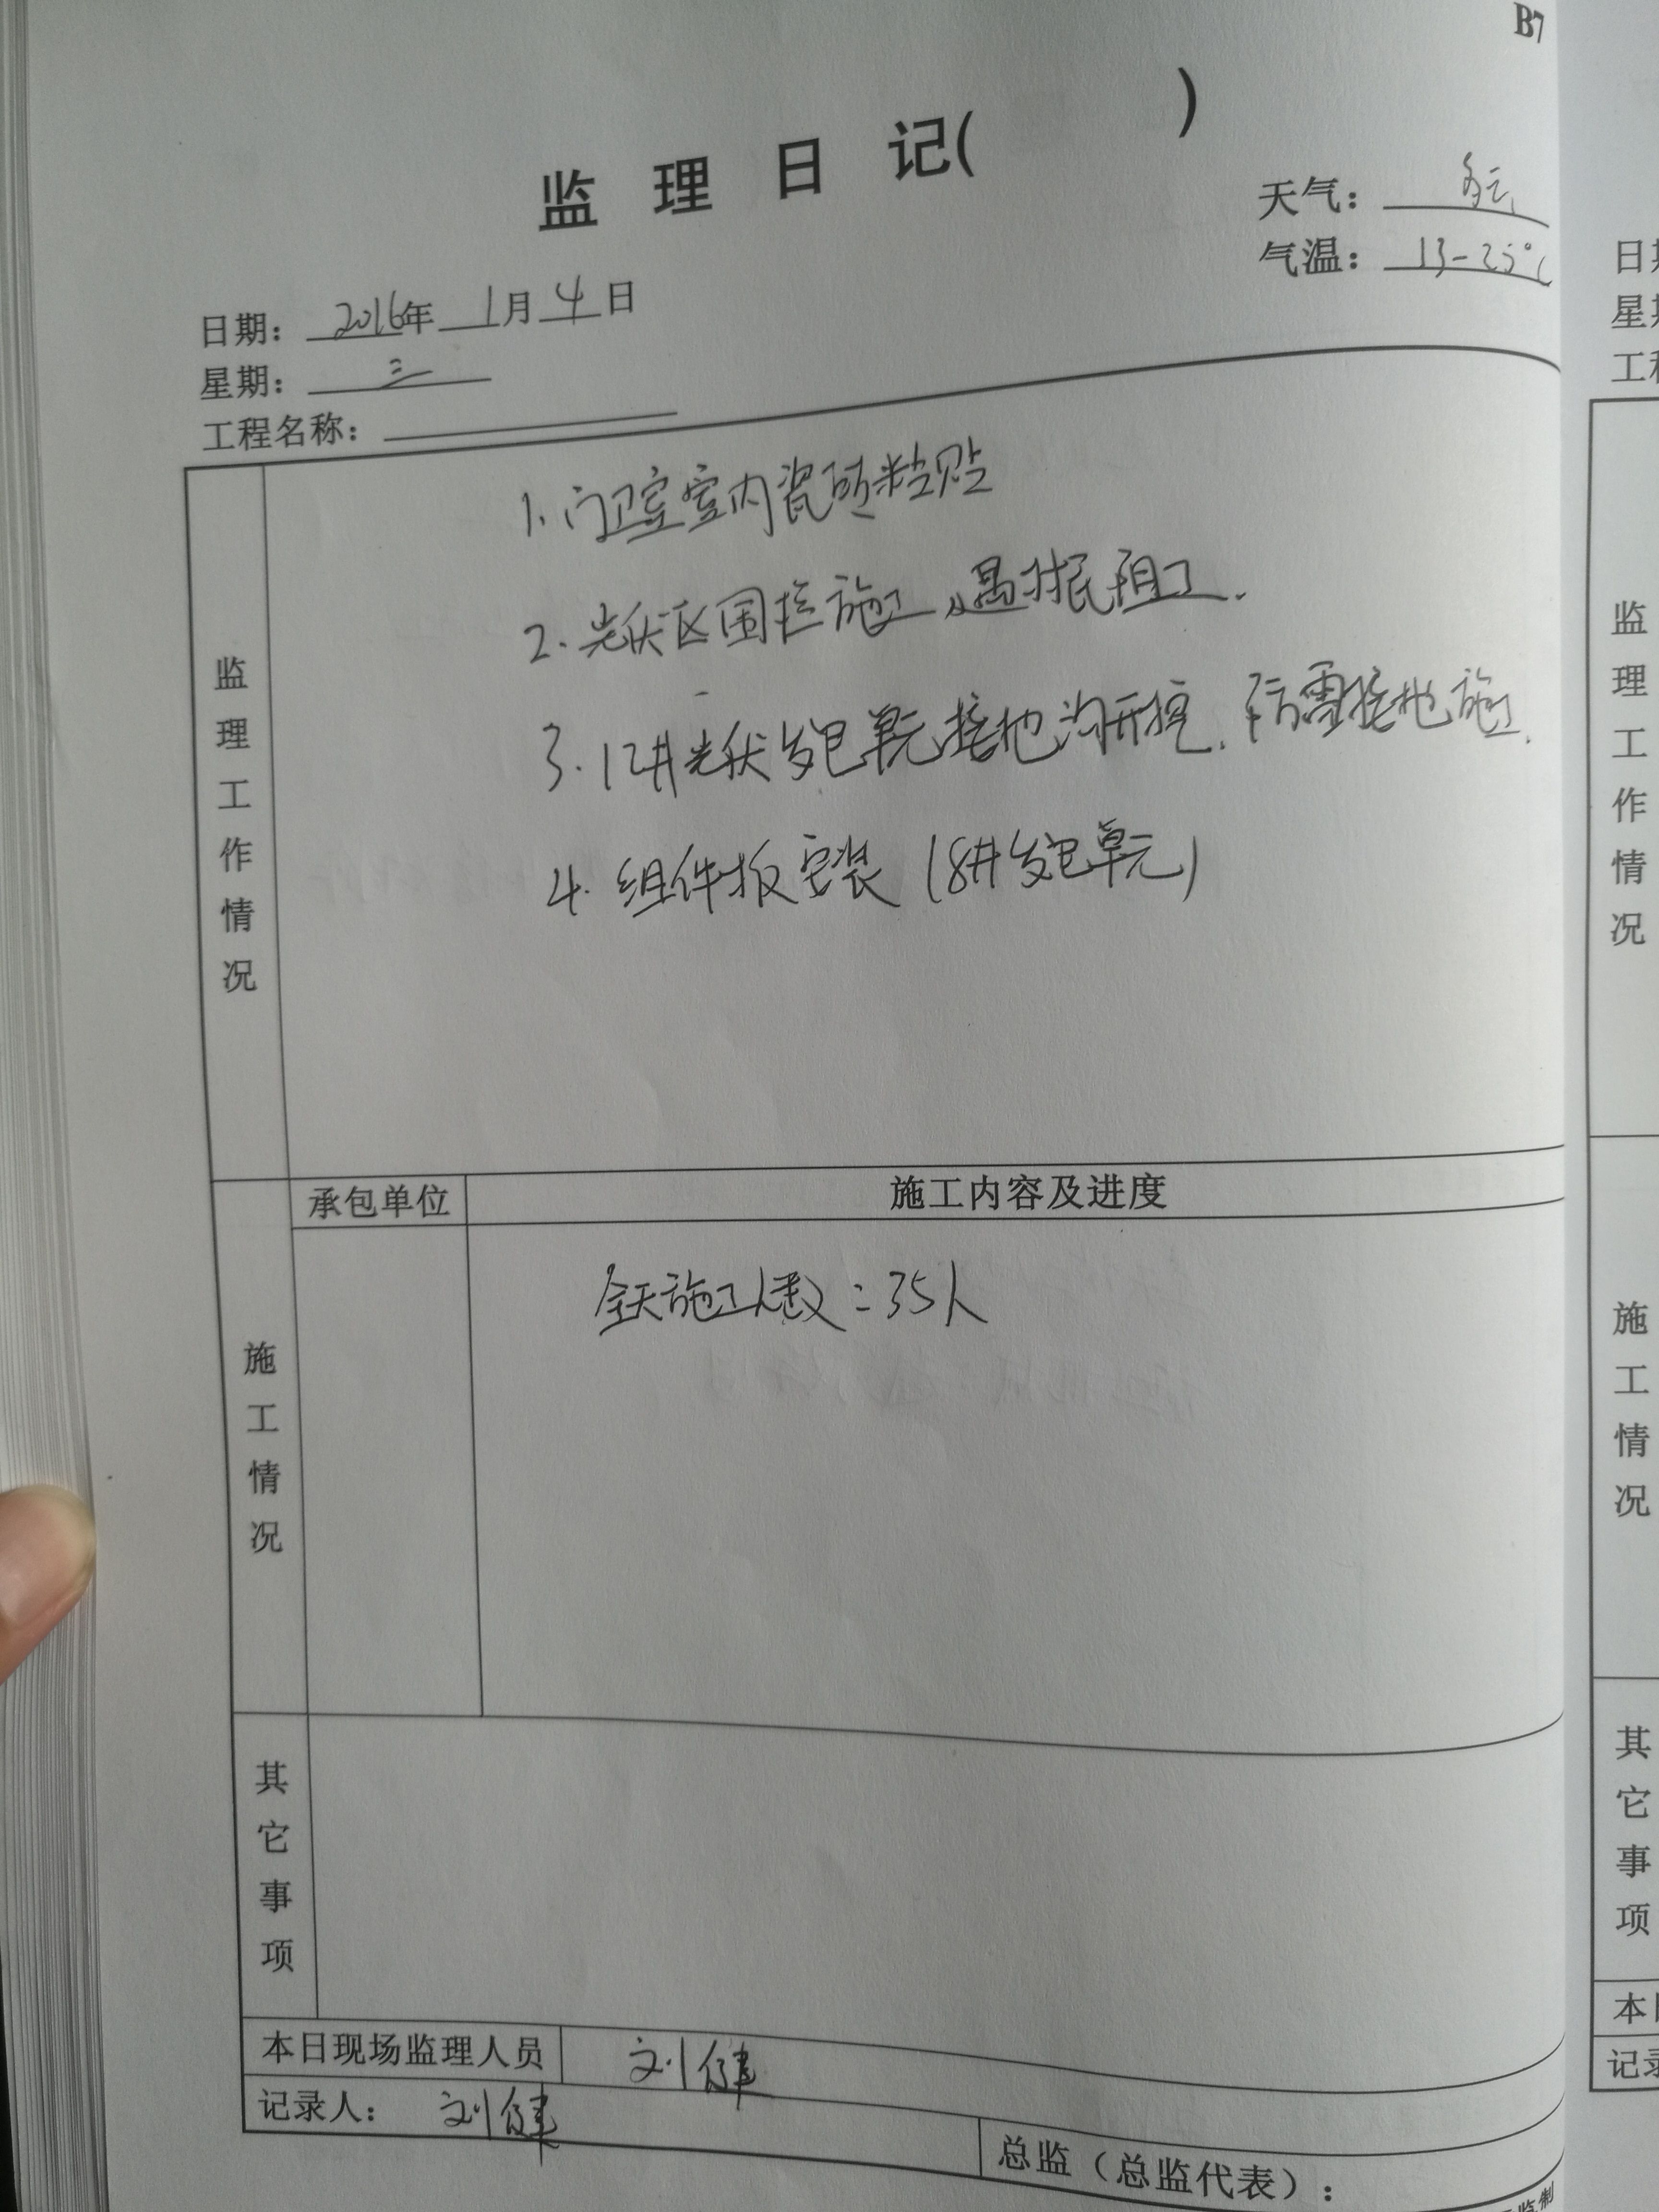 B7
监 理 日 记( )
天气：多云
气温：13-25℃
日期：2016年1月4日
星期：三
工程名称：
监理工作情况
1.门卫室室内瓷砖粘贴
2.光伏区围栏施工，遇村民阻工.
3.12#光伏发电单元接地沟开挖.防雷接地施工.
4.组件板安装(8#发电单元)
承包单位 施工内容及进度
施工情况
全天施工人数：35人
其它事项
本日现场监理人员 刘健
记录人：刘健
总监（总监代表）：
监制
日
星
工程
监理工作情况
施工情况
其它事项
本
记录